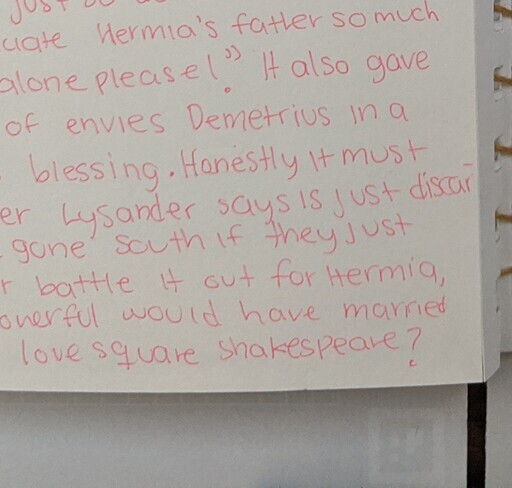 just
uate Hermia's father so much
alone please!" It also gave
of envies Demetrius in a
blessing. Honestly it must
er Lysander says is just discar
gone south if they just
r battle it out for Hermia,
owerful would have married
love square Shakespeare?